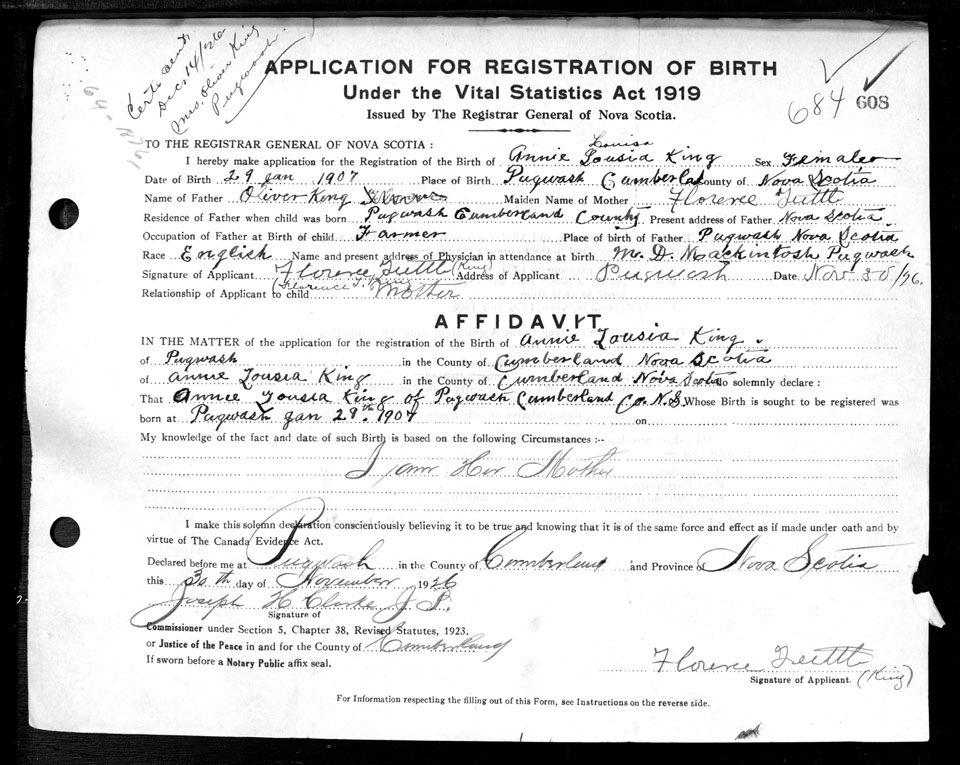 Certe sent
Dec 14/26
Mrs. Oliver King
Pugwash
684 608
APPLICATION FOR REGISTRATION OF BIRTH
Under the Vital Statistics Act 1919
Issued by The Registrar General of Nova Scotia.
TO THE REGISTRAR GENERAL OF NOVA SCOTIA :
Louisa
I hereby make application for the Registration of the Birth of Annie Lousia King Sex Female
Date of Birth 29 Jan 1907 Place of Birth Pugwash Cumberland County of Nova Scotia
Name of Father Oliver King Maiden Name of Mother Florence Tuttle
Residence of Father when child was born Pugwash Cumberland County Present address of Father Nova Scotia
Occupation of Father at Birth of child Farmer Place of birth of Father Pugwash Nova Scotia
Race English Name and present address of Physician in attendance at birth M. D. Mackintosh Pugwash
Signature of Applicant Florence Tuttle (King) Address of Applicant Pugwash Date Nov 30/26.
(Florence T. King)
Relationship of Applicant to child Mother
AFFIDAVIT
IN THE MATTER of the application for the registration of the Birth of Annie Lousia King.
of Pugwash in the County of Cumberland Nova Scotia
of Annie Lousia King in the County of Cumberland Nova Scotia do solemnly declare :
That Annie Lousia King of Pugwash Cumberland Co. N.S. Whose Birth is sought to be registered was
born at Pugwash Jan 29th 1907 on
My knowledge of the fact and date of such Birth is based on the following Circumstances :--
I am Her Mother
I make this solemn declaration conscientiously believing it to be true and knowing that it is of the same force and effect as if made under oath and by
virtue of The Canada Evidence Act.
Declared before me at Pugwash in the County of Cumberland and Province of Nova Scotia
this 30th day of November 1926
Joseph H Clarke J P.
Signature of
Commissioner under Section 5, Chapter 38, Revised Statutes, 1923,
or Justice of the Peace in and for the County of Cumberland
If sworn before a Notary Public affix seal.
Florence Tuttle
Signature of Applicant. (King)
For Information respecting the filling out of this Form, see Instructions on the reverse side.